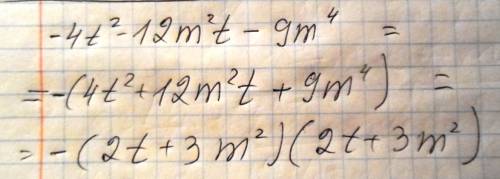 -4t²-12m²t-9m⁴ =
=-(4t²+12m²t+9m⁴) =
=-(2t+3m²)(2t+3m²)